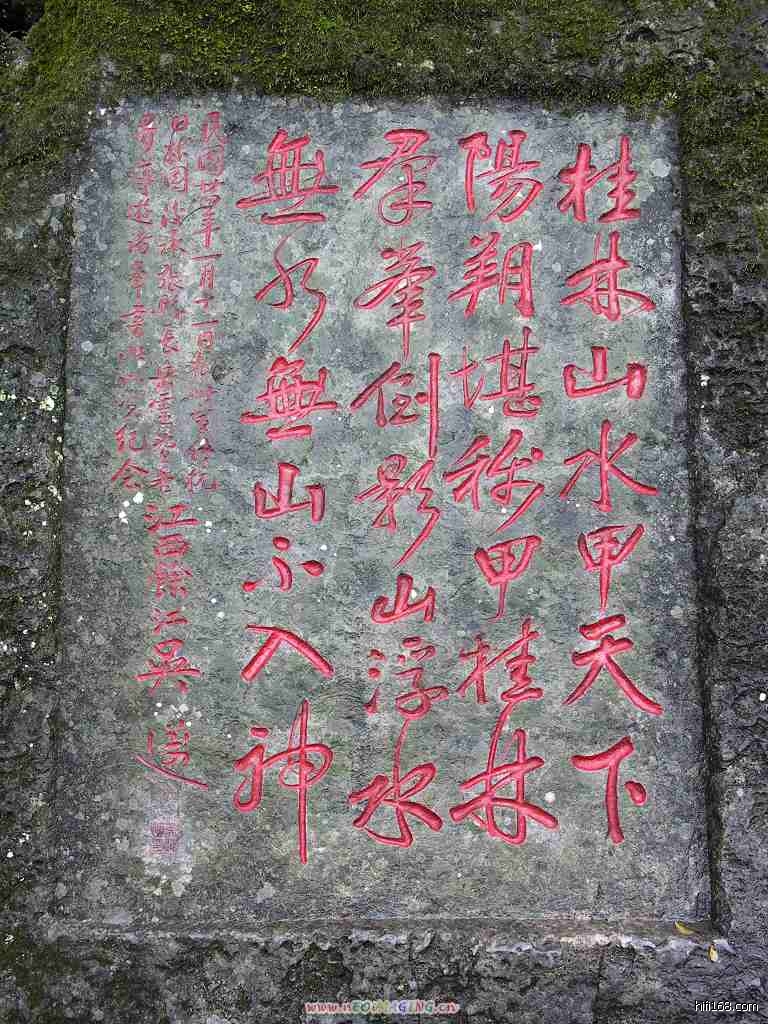 桂林山水甲天下
陽朔堪稱甲桂林
羣峯倒影山浮水
無水無山不入神
民國廿四年一月十一日
紀念
江西餘江吳邁
www.nEOiMAGING.cn
hifi168.com